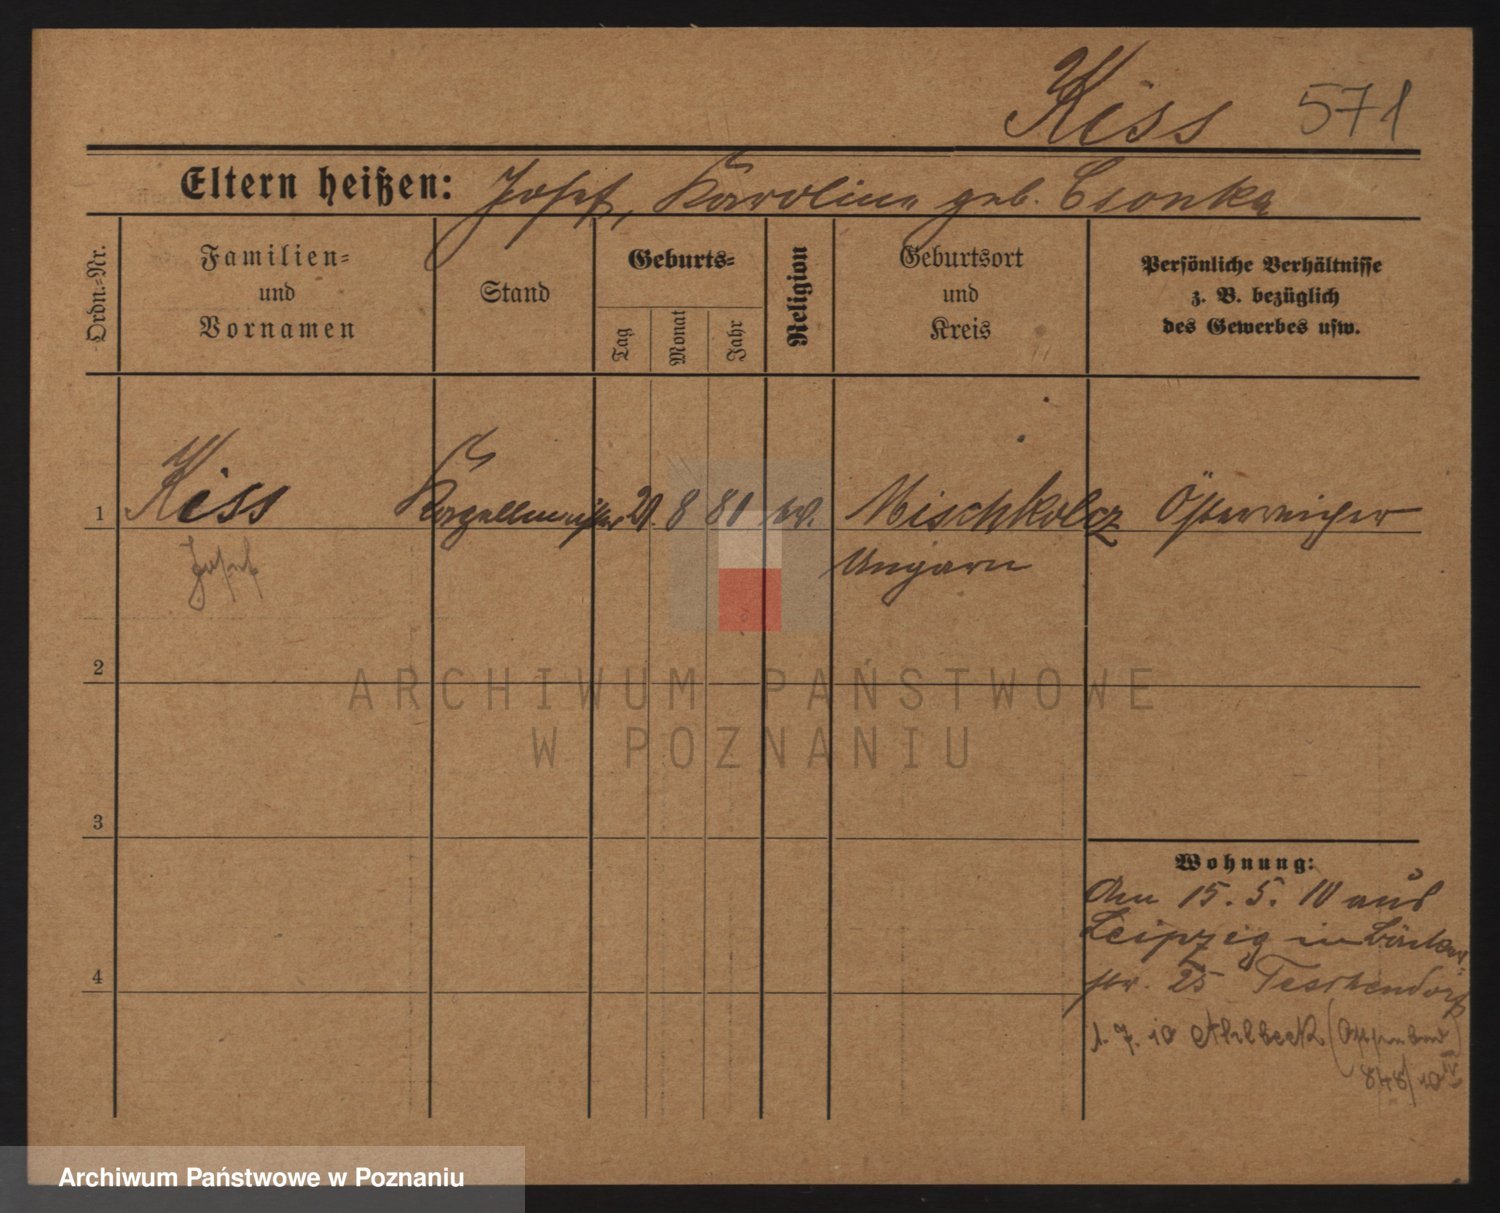 Kiss 571
Eltern heißen: Josef, Karoline geb. Csonka
Ordn.-Nr.
Familien-
und
Vornamen
Stand
Geburts-
Tag
Monat
Jahr
Religion
Geburtsort
und
Kreis
Persönliche Verhältnisse
z. B. bezüglich
des Gewerbes usw.
1 Kiss Kapellmeister 20. 8 81 Mischkolcz Österreicher
Josef Ungarn
2
3
4
Wohnung:
Am 15. 5. 10 aus
Leipzig in Bäcker-
str. 25 Teschendorf
1. 7. 10 Ahlbeck (Ostseebad)
848/10
ARCHIWUM PAŃSTWOWE
W POZNANIU
Archiwum Państwowe w Poznaniu